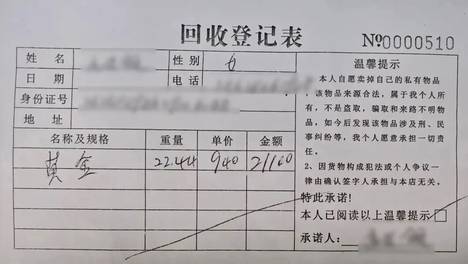 回收登记表 №0000510
姓名 性别 女
日期 电话
身份证号
地址
名称及规格 重量 单价 金额
黄金 22.44 940 21100
温馨提示
本人自愿卖掉自己的私有物品
,该物品来源合法,属于我个人所
有,不是盗取,骗取和来路不明物
品,如今后发现该物品涉及刑、民
事纠纷等,我个人愿意承担一切责
任。
2、因货物构成犯法或个人争议一
律由确认签字人承担与本店无关。
特此承诺!
本人已阅读以上温馨提示□
承诺人: